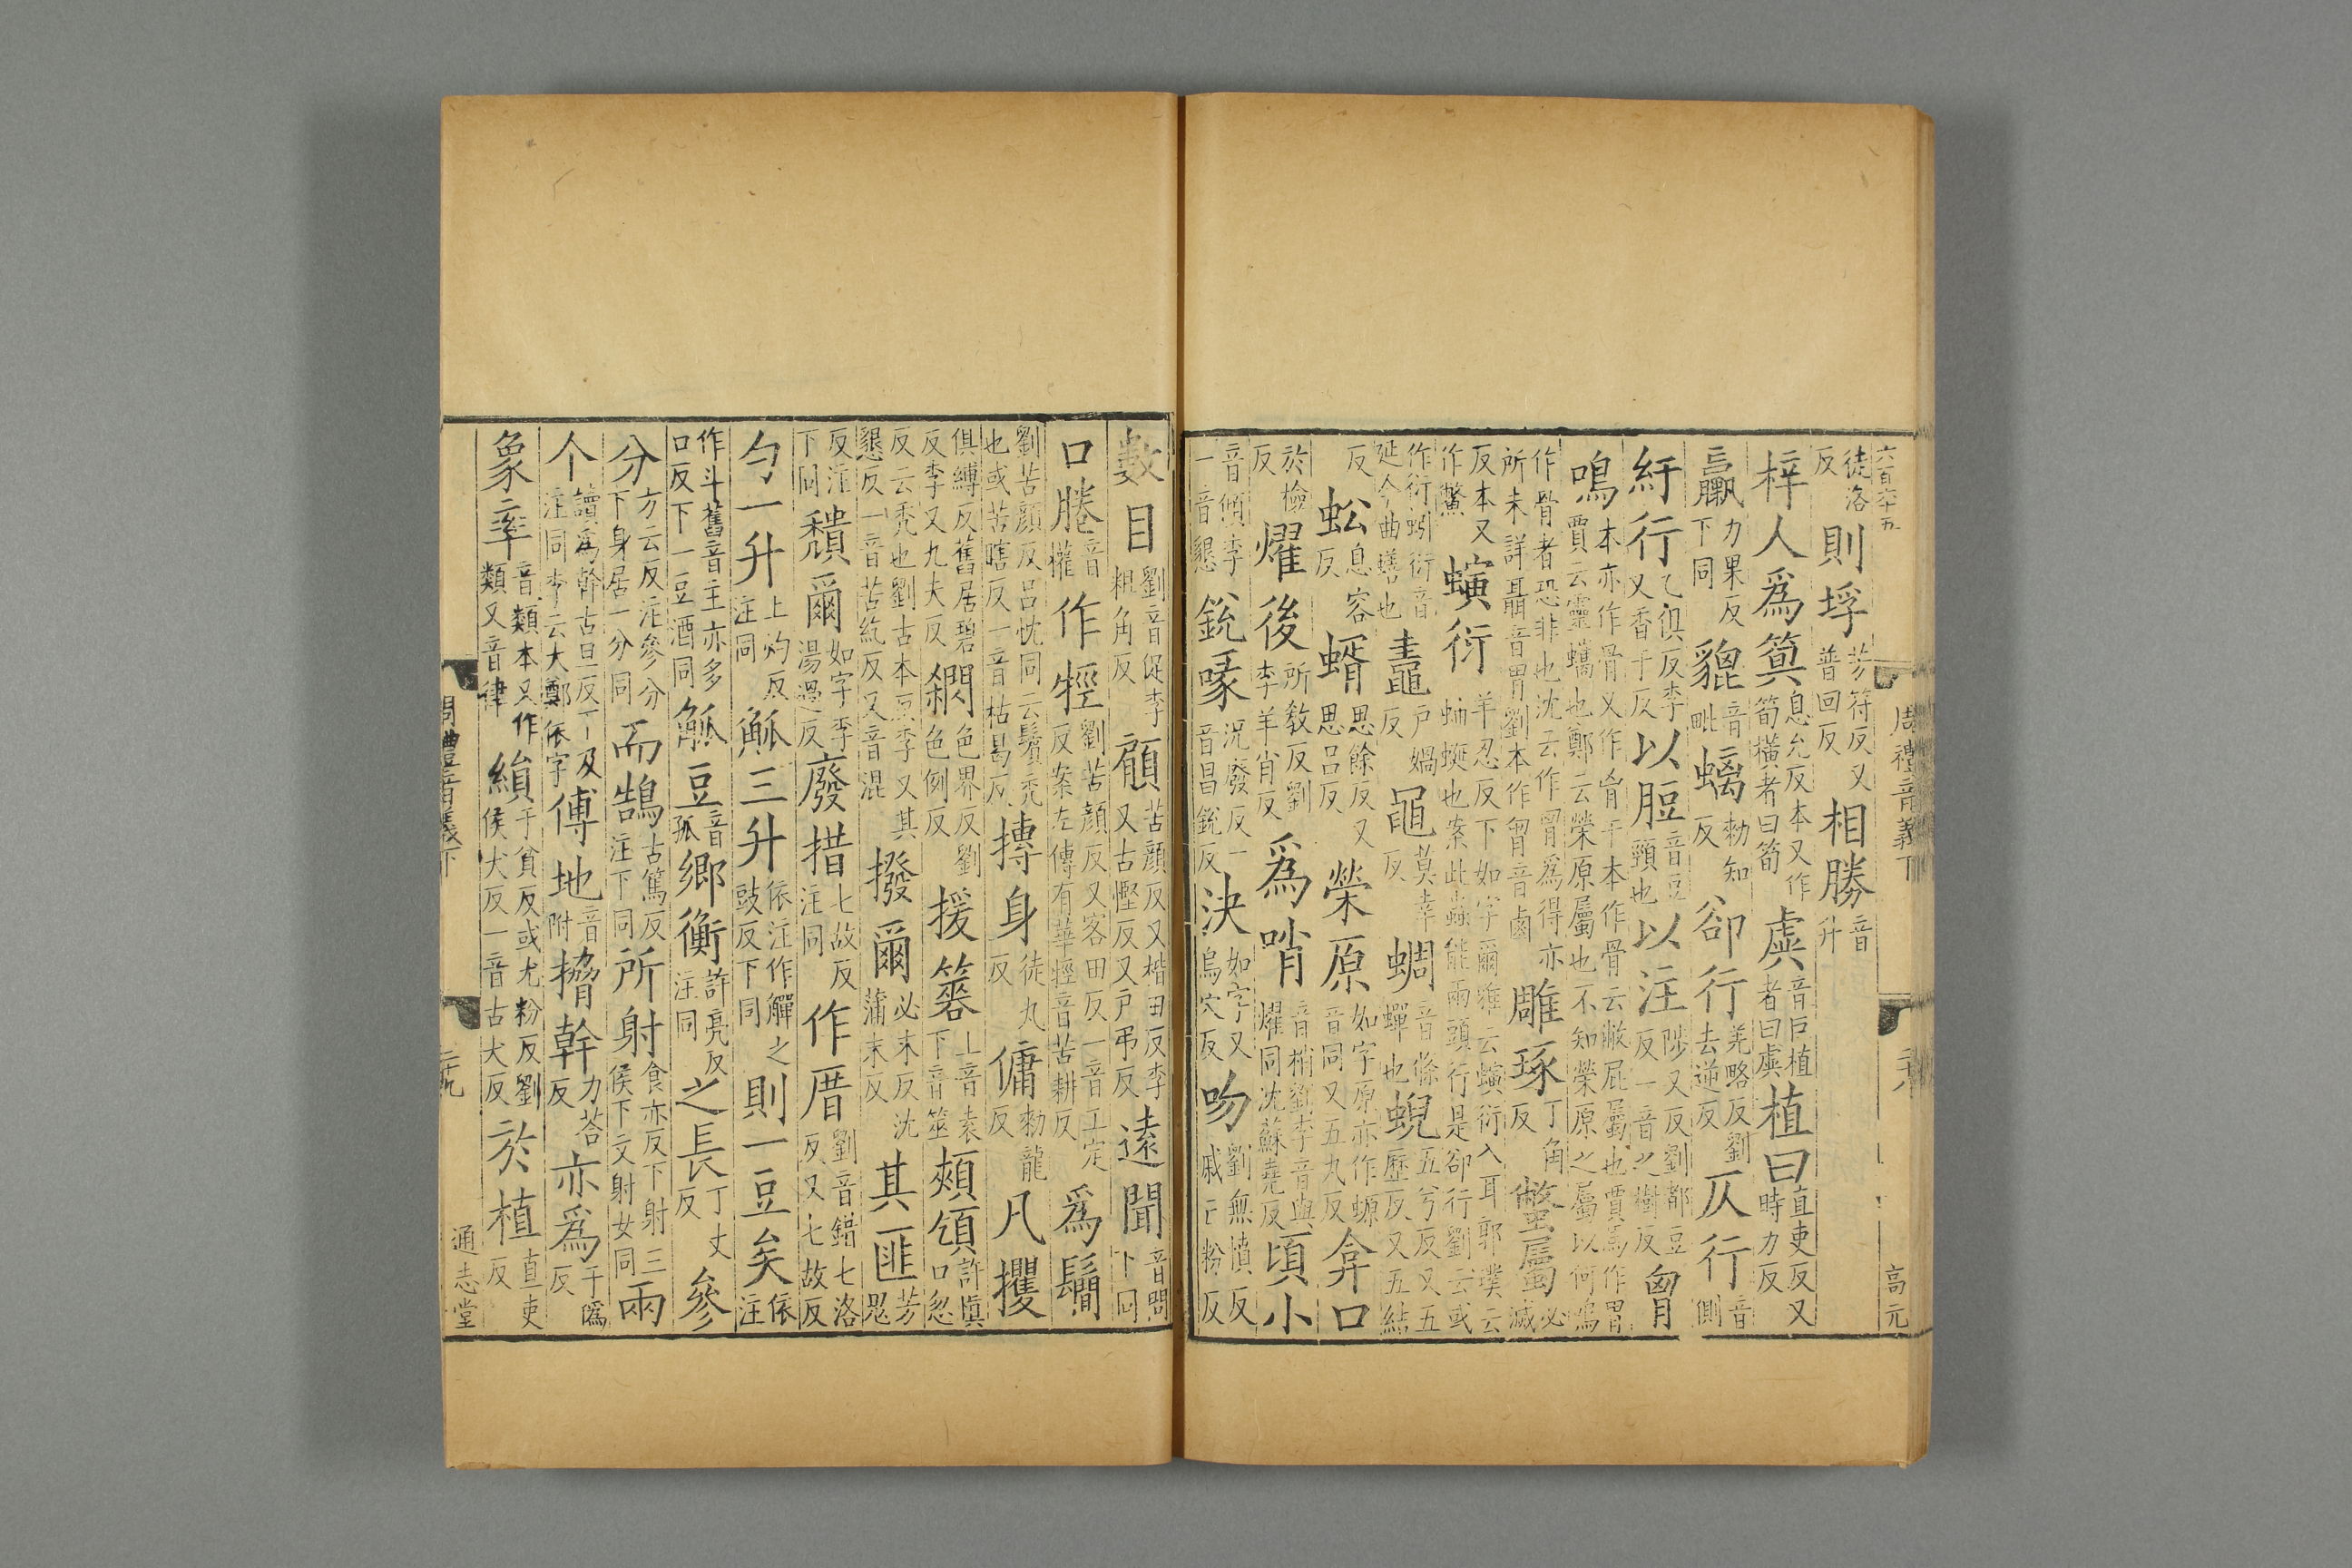 六百六十五 周禮音義下 高元
徒洛反 則垺芳符反又普回反 相勝音升
梓人爲簨息允反本又作筍橫者曰筍 虡音巨植者曰虡 植曰直吏反又時力反
臝力果反下同 貔音毗 螭勑知反 郤行羌略反劉去逆反 仄行音側
紆行乙俱反李又香于反 以脰音豆頸也 以注陟又反劉都豆反一音之樹反 胷
鳴本亦作骨又作肎干本作骨云敝屁屬也賈馬作胃賈云靈蠵也鄭云榮原屬也不知榮原之屬以何鳴
作骨者恐非也沈云作胃爲得亦所未詳聶音胃劉本作胷音鹵 雕琢丁角反 蟞屬必滅
反本又作鱉 螾衍羊忍反下如字爾雅云螾衍入耳郭璞云蚰蜒也案此蟲能兩頭行是郤行劉云或
作衍蚓衍音延今曲蟮也 鼃戶媧反 黽莫幸反 蜩音條蟬也 蜺五兮反又五歷反又五結
反 蚣息容反 蝑思餘反又思呂反 榮原如字原亦作螈音同又五丸反 弇口
於檢反 燿後所敎反劉李羊肖反 爲哨音稍劉李音與燿同沈蘇堯反 頃小
音傾李一音懇 銳喙況廢反一音昌銳反 決如字又烏穴反 吻劉無憤反戚亡粉反
數目劉音促李粗角反 顧苦顔反又楷田反李又古慳反又戶弔反 遠聞音問下同
口騰音權 作牼劉苦顔反又客田反一音工定反案左傳有華牼音苦耕反 爲鬜
劉苦顔反呂忱同云鬢禿也或苦瞎反一音枯曷反 摶身徒丸反 傭勑龍反 凡攫
俱縛反舊居碧反李又九夫反 𦈉色界反劉色例反 援簭上音袁下音筮 頰頎許愼口忽
反云禿也劉古本反李又其懇反一音苦紇反又音混 撥爾必末反沈蒲末反 其匪芳鬼
反注下同 穨爾如字李湯過反 廢措七故反注同 作厝劉音錯七洛反又七故反
勺一升上灼反注同 觚三升依注作觶之豉反下同 則一豆矣依注
作斗舊音主亦多口反下一豆酒同 觚豆音孤 鄉衡許亮反注同 之長丁丈反 參
分方云反注參分下身居一分同 而鵠古篤反注下同 所射食亦反下射三侯下文射女同 兩
个讀爲幹古旦反丁及注同李云大鄭依字 傅地音附 㨷幹力荅反 亦爲于僞反
象率音類本又作類又音律 縜于貧反或尤粉反劉侯犬反一音古犬反 於植直吏反
周禮音義下 二十九 通志堂